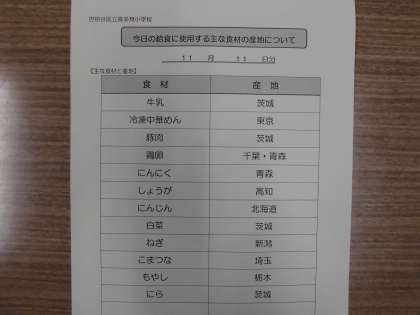 世田谷区立喜多見小学校
今日の給食に使用する主な食材の産地について
11 月 11 日分
【主な食材と産地】
食 材 産 地
牛乳 茨城
冷凍中華めん 東京
豚肉 茨城
鶏卵 千葉・青森
にんにく 青森
しょうが 高知
にんじん 北海道
白菜 茨城
ねぎ 新潟
こまつな 埼玉
もやし 栃木
にら 茨城